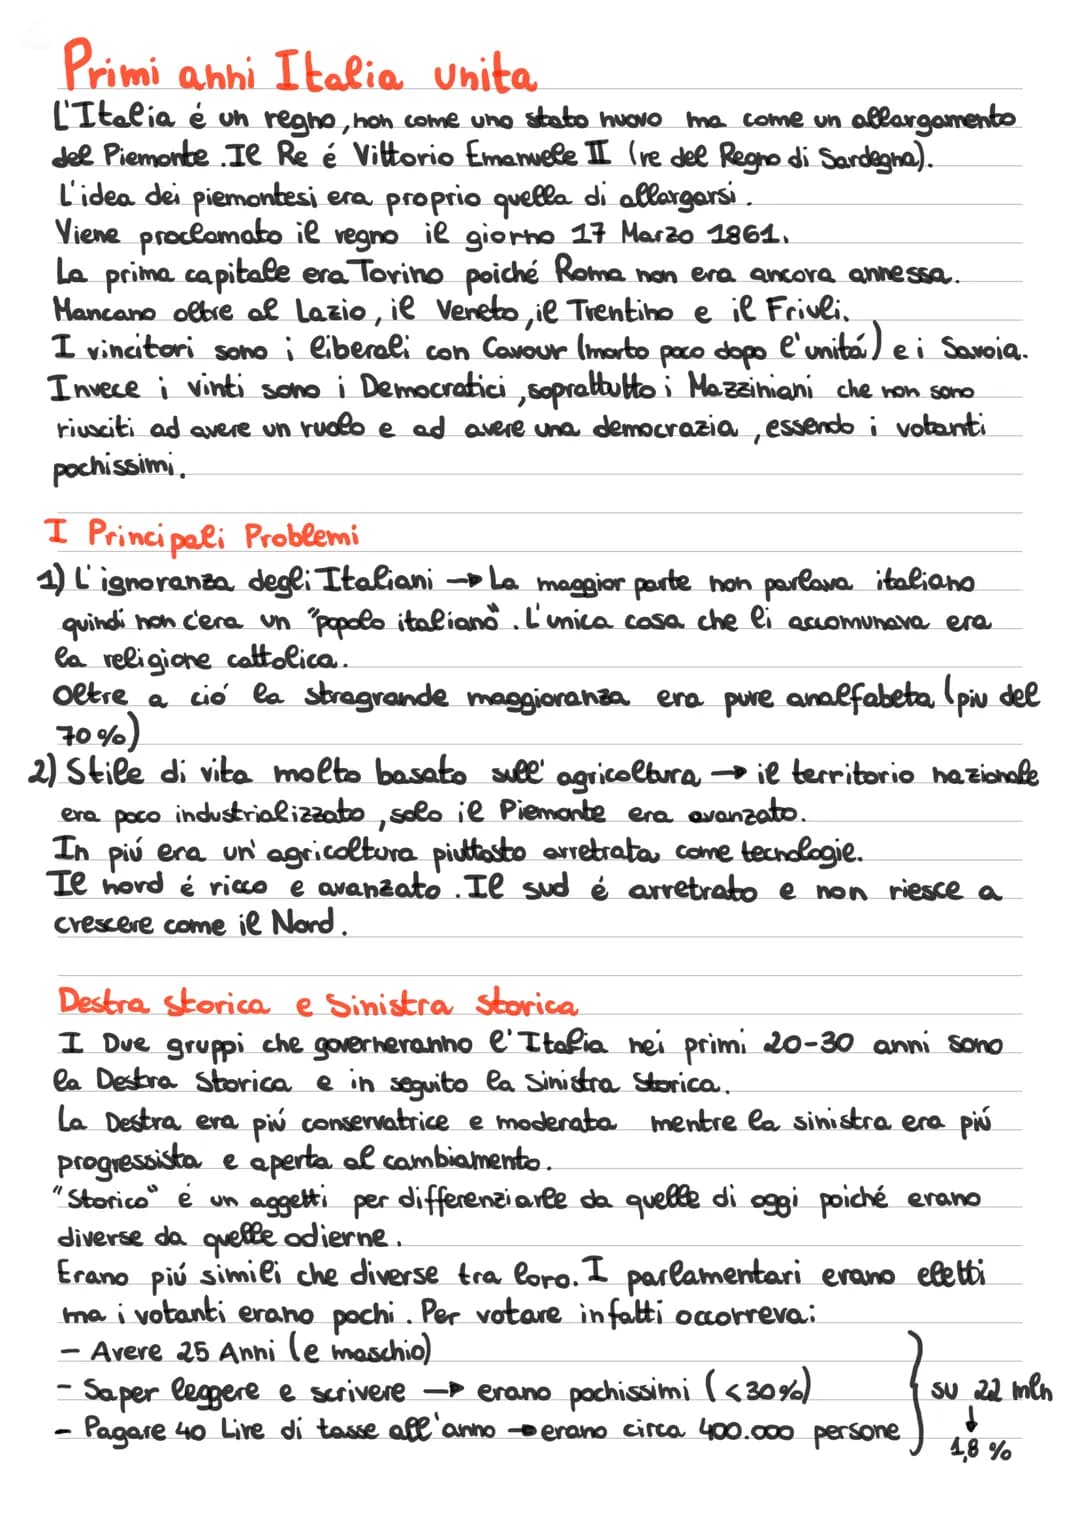 Primi anni Italia unita
L'Italia é un regno, non come uno stato nuovo ma come un allargamento
del Piemonte. Il Re é Vittorio Emanuele II (re del Regno di Sardegna).
L'idea dei piemontesi era proprio quella di allargarsi.
Viene proclamato il regno il giorno 17 Marzo 1861.
La prima capitale era Torino poiché Roma non era ancora annessa.
Mancano oltre al Lazio, il Veneto, il Trentino e il Friuli.
I vincitori sono i liberali con Cavour (morto poco dopo l'unitá) e i Savoia.
Invece i vinti sono i Democratici, soprattutto i Mazziniani che non sono
riusciti ad avere un ruolo e ad avere una democrazia, essendo i votanti
pochissimi.
I Principali Problemi
1) L'ignoranza degli Italiani → La maggior parte non parlava italiano
quindi non c'era un "popolo italiano". L'unica cosa che li accomunava era
la religione cattolica.
Oltre a ció la stragrande maggioranza era pure analfabeta (piu del
70%)
2) Stile di vita molto basato sull'agricoltura → il territorio nazionale
era poco industrializzato, solo il Piemonte era avanzato.
In piú era un'agricoltura piuttosto arretrata come tecnologie.
Il nord é ricco e avanzato. Il sud é arretrato e non riesce a
crescere come il Nord.
Destra storica e Sinistra Storica
I Due gruppi che governeranno l'Italia nei primi 20-30 anni sono
la Destra Storica e in seguito la Sinistra Storica.
La Destra era piú conservatrice e moderata mentre la sinistra era piú
progressista e aperta al cambiamento.
"Storico" é un aggetti per differenziarle da quelle di oggi poiché erano
diverse da quelle odierne.
Erano piú simili che diverse tra loro. I parlamentari erano eletti
ma i votanti erano pochi. Per votare infatti occorreva:
- Avere 25 Anni (e maschio)
- Saper leggere e scrivere → erano pochissimi (<30%)
- Pagare 40 Lire di tasse all'anno → erano circa 400.000 persone
su 22 mln
↓
1,8 %